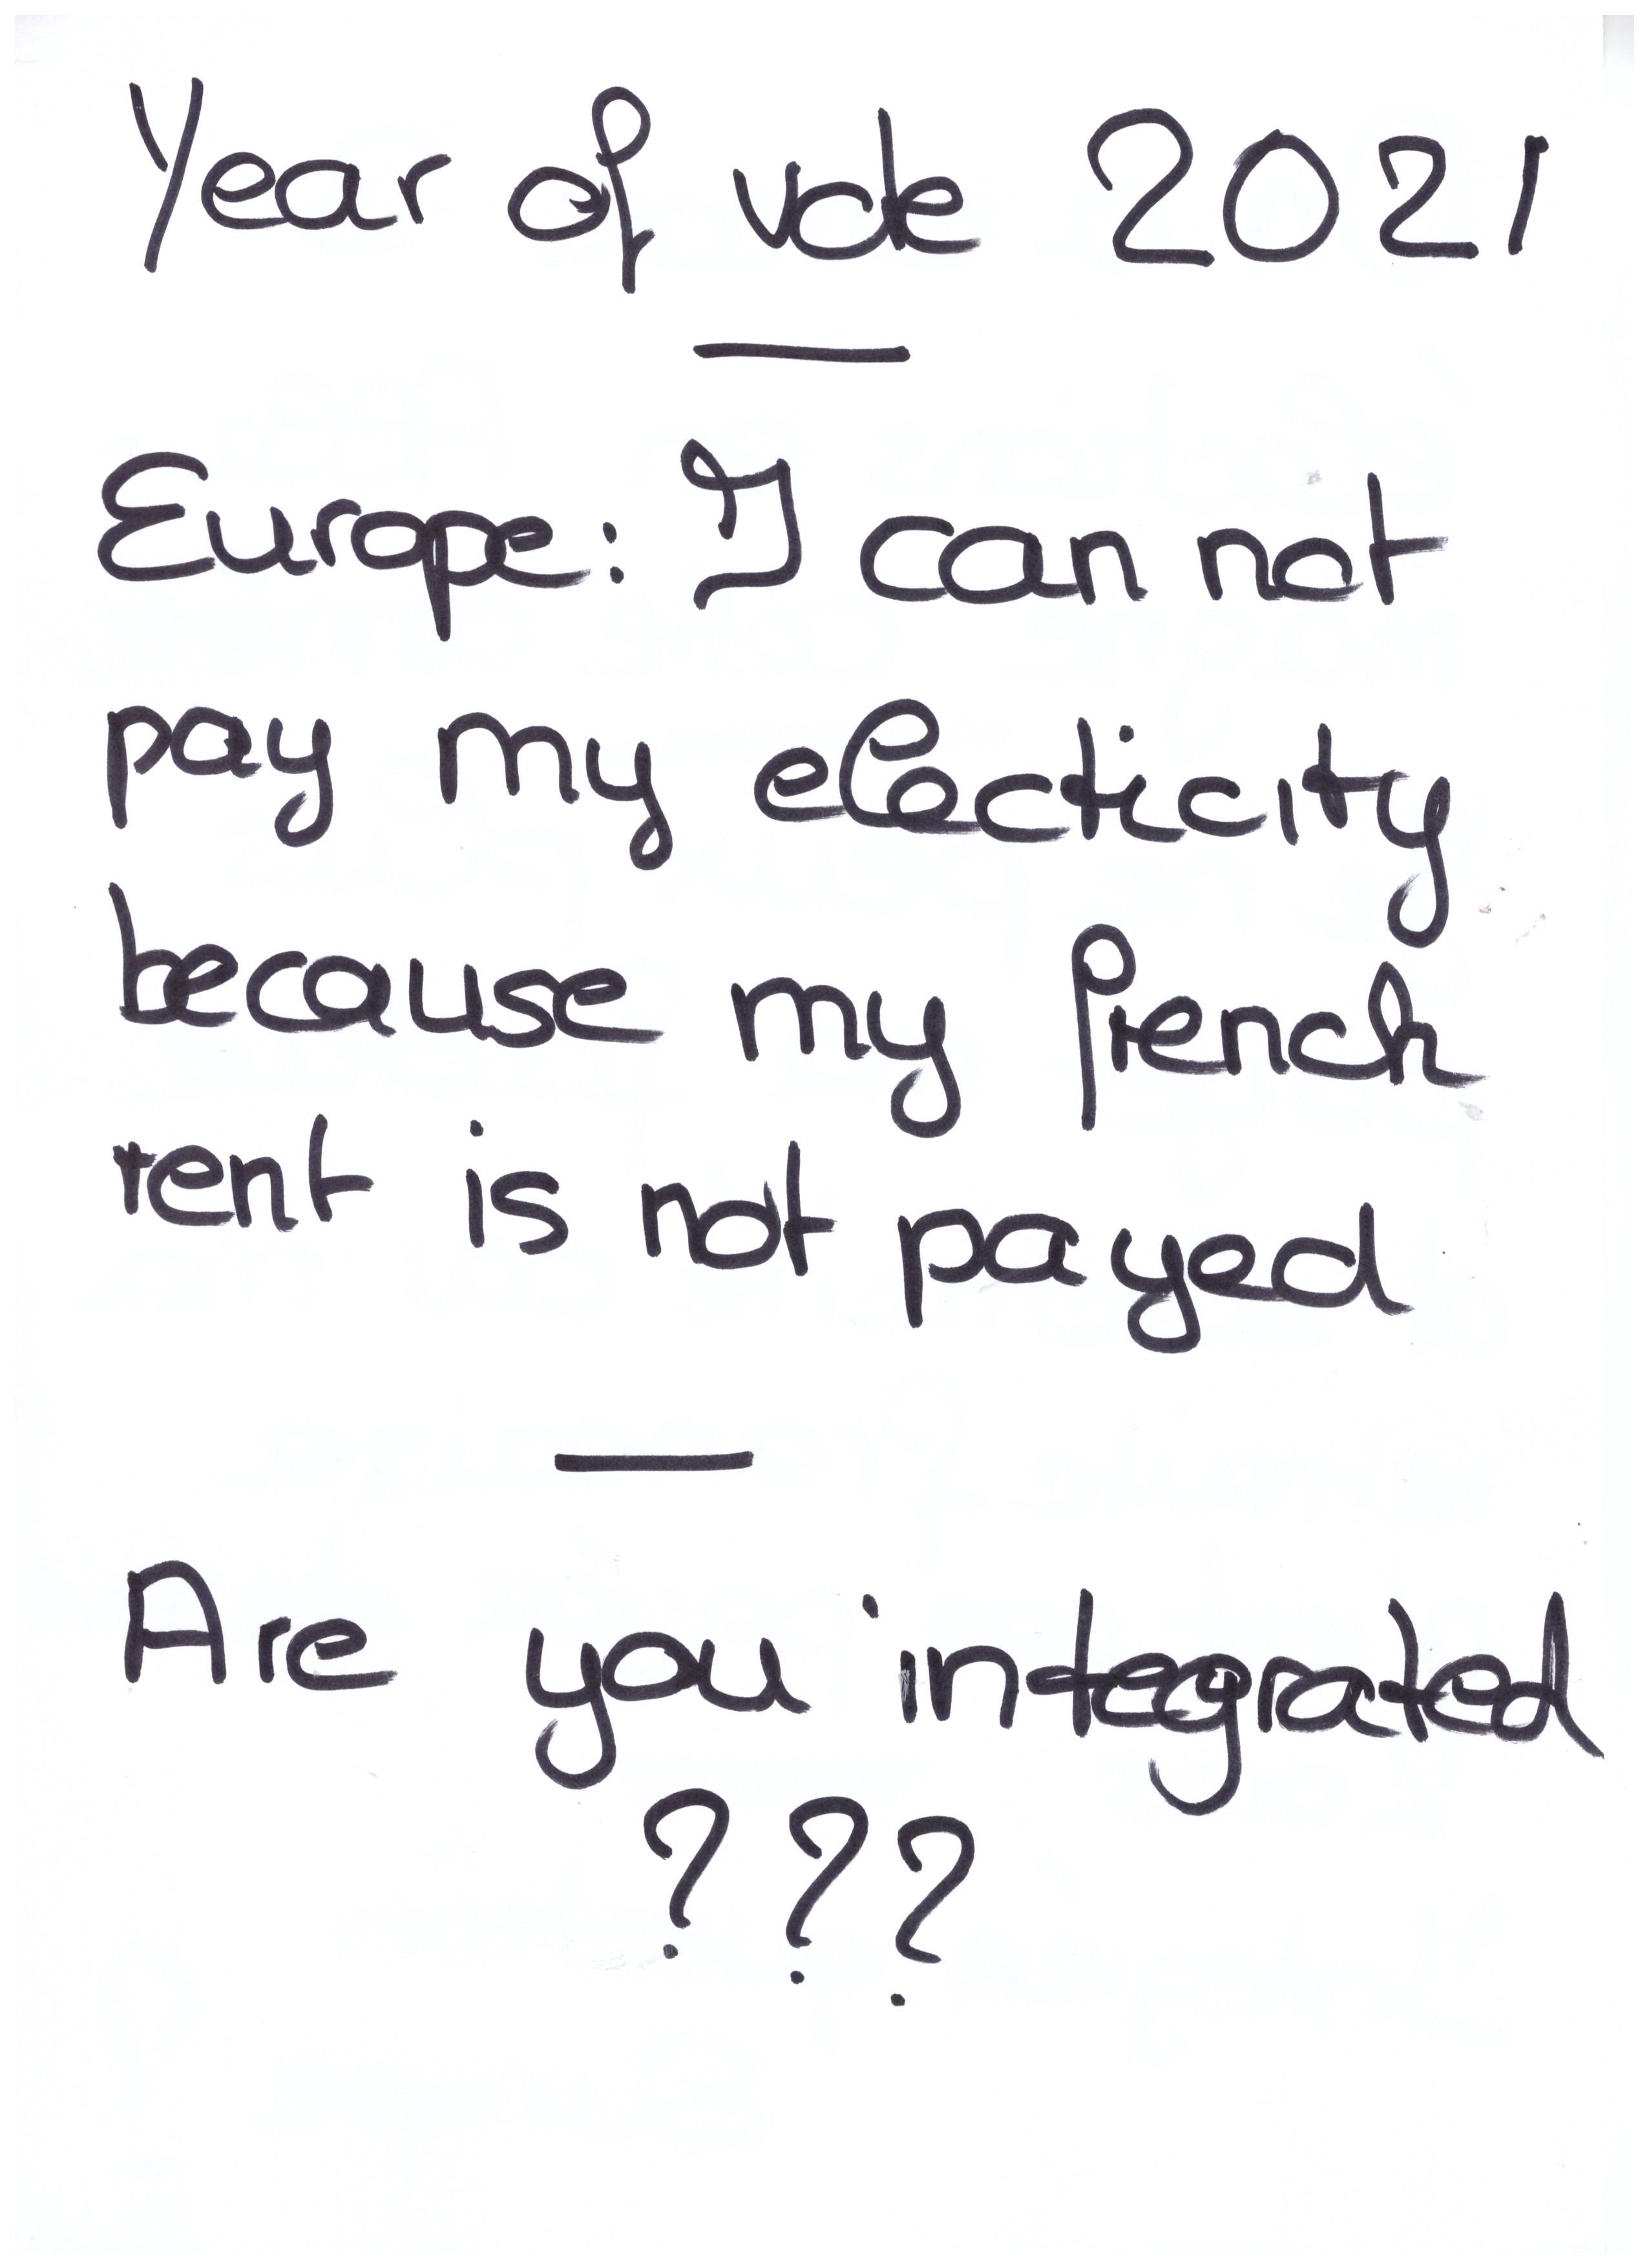 Year of vote 2021
Europe: I can not
pay my electicity
because my french
rent is not payed
Are you integrated
???